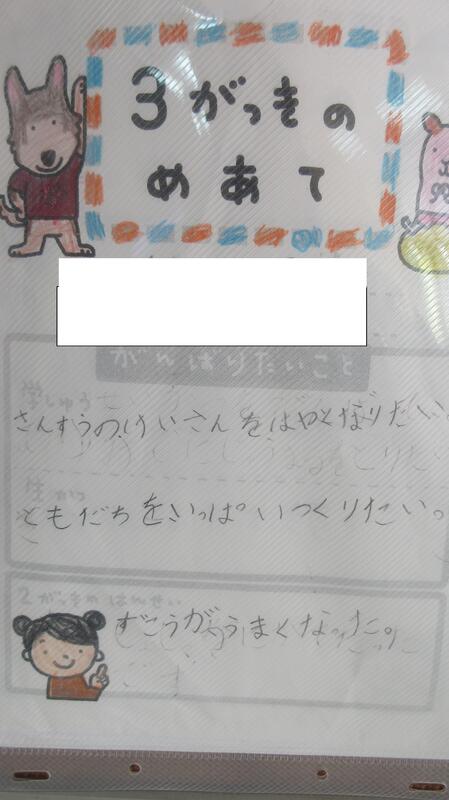 3がっきの
めあて
がんばりたいこと
学しゅう
さんすうのけいさんをはやくなりたい。
生かつ
ともだちをいっぱいつくりたい。
2がっきのはんせい
ずこうがうまくなった。